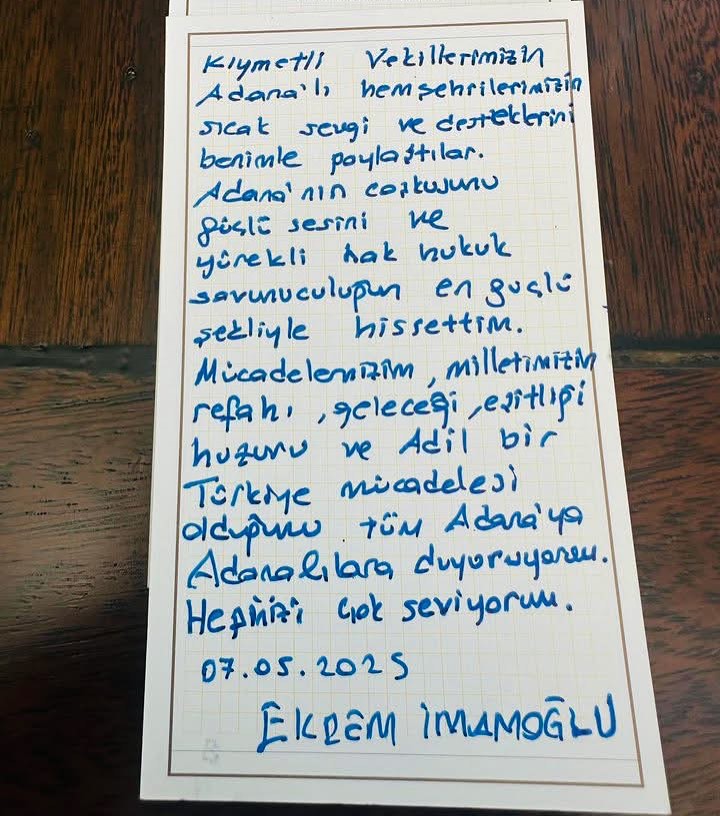 Kıymetli Vekillerimizin
Adana'lı hemşehrilerimizin
sıcak sevgi ve desteklerini
benimle paylaştılar.
Adana'nın coşkusunu
güçlü sesini ve
yürekli hak hukuk
savunuculuğun en güçlü
şekliyle hissettim.
Mücadelemizim, milletimizin
refahı, geleceği, eşitliği
huzuru ve Adil bir
Türkiye mücadelesi
olduğunu tüm Adana'ya
Adanalılara duyuruyorum.
Hepinizi çok seviyorum.
07.05.2025
EKREM İMAMOĞLU